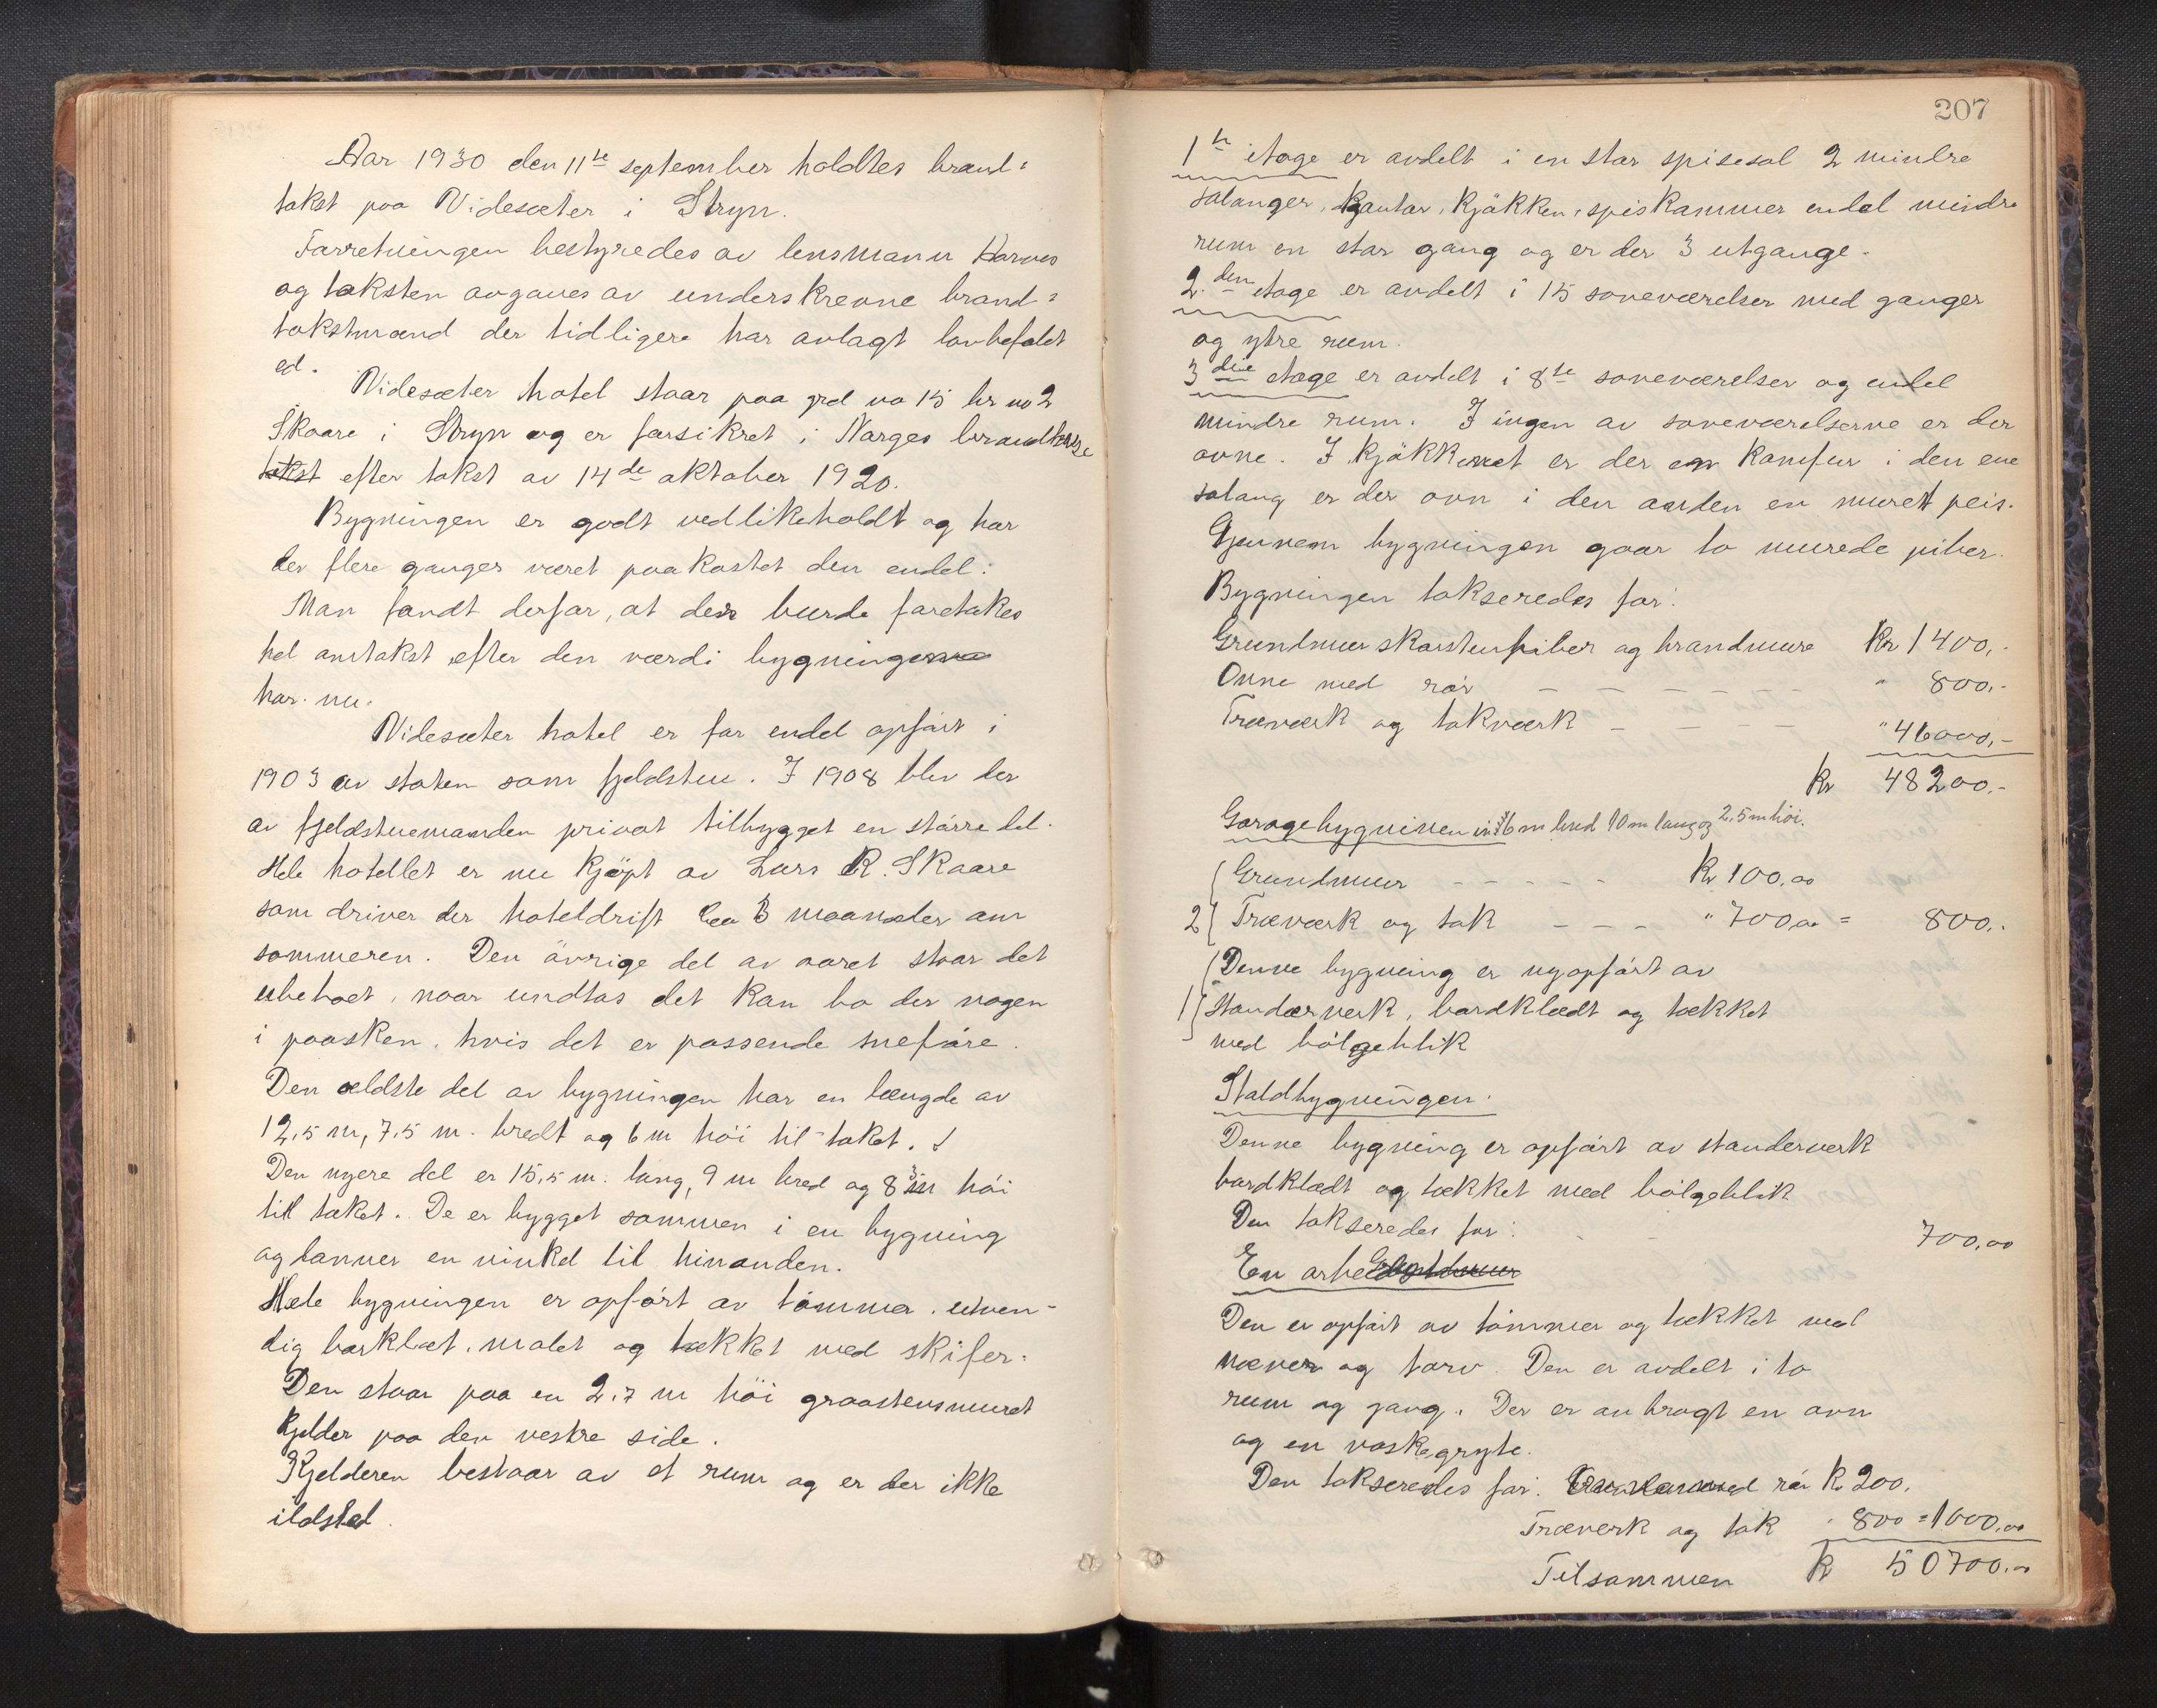 Aar 1930 den 11te september holdtes brand-
takst paa Videsæter i Stryn.
Forretningen bestyredes av lensmann
og taksten avgaves av underskrevne brand-
takstmænd der tidligere har avlagt lovbefalet
ed.
Videsæter hotel staar paa grd no 15 br no 2
Skaare i Stryn og er forsikret i Norges brandkasse
efter takst av 14de oktober 1920.
Bygningen er godt vedlikeholdt og har
der flere ganger været paakostet den endel.
Man fandt derfor, at der burde foretakes
hel omtakst efter den værdi bygningene
har nu.
Videsæter hotel er for endel opført i
1903 av staten som fjeldstue. I 1908 blev der
av fjeldstuemanden privat tilbygget en större del.
Hele hotellet er nu kjöpt av Lars R. Skaare
som driver der hoteldrift ca 3 maaneder om
sommeren. Den övrige del av aaret staar det
ubeboet, naar undtas det kan bo der nogen
i paasken, hvis det er passende sneføre.
Den ældste del av bygningen har en længde av
12,5 m, 7,5 m. bredt og 6 m höi til taket.
Den nyere del er 15,5 m. lang, 9 m bred og 8 m höi
til taket. De er bygget sammen i en bygning
og danner en vinkel til hinanden.
Hele bygningen er opfört av tömmer, utven-
dig borklæt, malet og tækket med skifer.
Den staar paa en 2,7 m höi graastensmuret
kjelder paa den vestre side.
Kjelderen bestaar av et rum og er der ikke
ildsted.
207
1te etage er avdelt i en stor spisesal 2 mindre
salonger, kontor, kjökken, spiskammer endel mindre
rum en stor gang og er der 3 utgange.
2.den etage er avdelt i 15 soveværelser med ganger
og ytre rum.
3die etage er avdelt i 8te soveværelser og endel
mindre rum. I ingen av soveværelserne er der
ovne. I kjökkenet er der en komfur i den ene
salong er der ovn i den anden en murett peis.
Gjennem bygningen gaar to murede piber.
Bygningen takseredes for:
Grundmur skorstenspiber og brandmure Kr 1400,-
Ovne med rör - - - - - - " 800,-
Træværk og takværk - - - - " 46000,-
Kr 48200,-
Garagebygningen 6 m bred 10 m lang og 2,5 m höi.
Grundmuur - - - - - Kr 100,00
2 Træværk og tak - - - " 700,00 = 800,-
Denne bygning er nyopfört av
1 standerverk, bordklædt og tækket
med bölgeblik
Staldbygningen.
Denne bygning er opfört av standerverk
bordklædt og tækket med bölgeblik
Den takseredes for: - - 700,00
En
Den er opfört av tömmer og tækket med
næver og torv. Den er avdelt i to
rum og gang. Der er anbragt en ovn
og en vaskegryte.
Den takseredes for: rör Kr 200,
Træverk og tak " 800 = 1000,00
Tilsammen Kr 50700,00